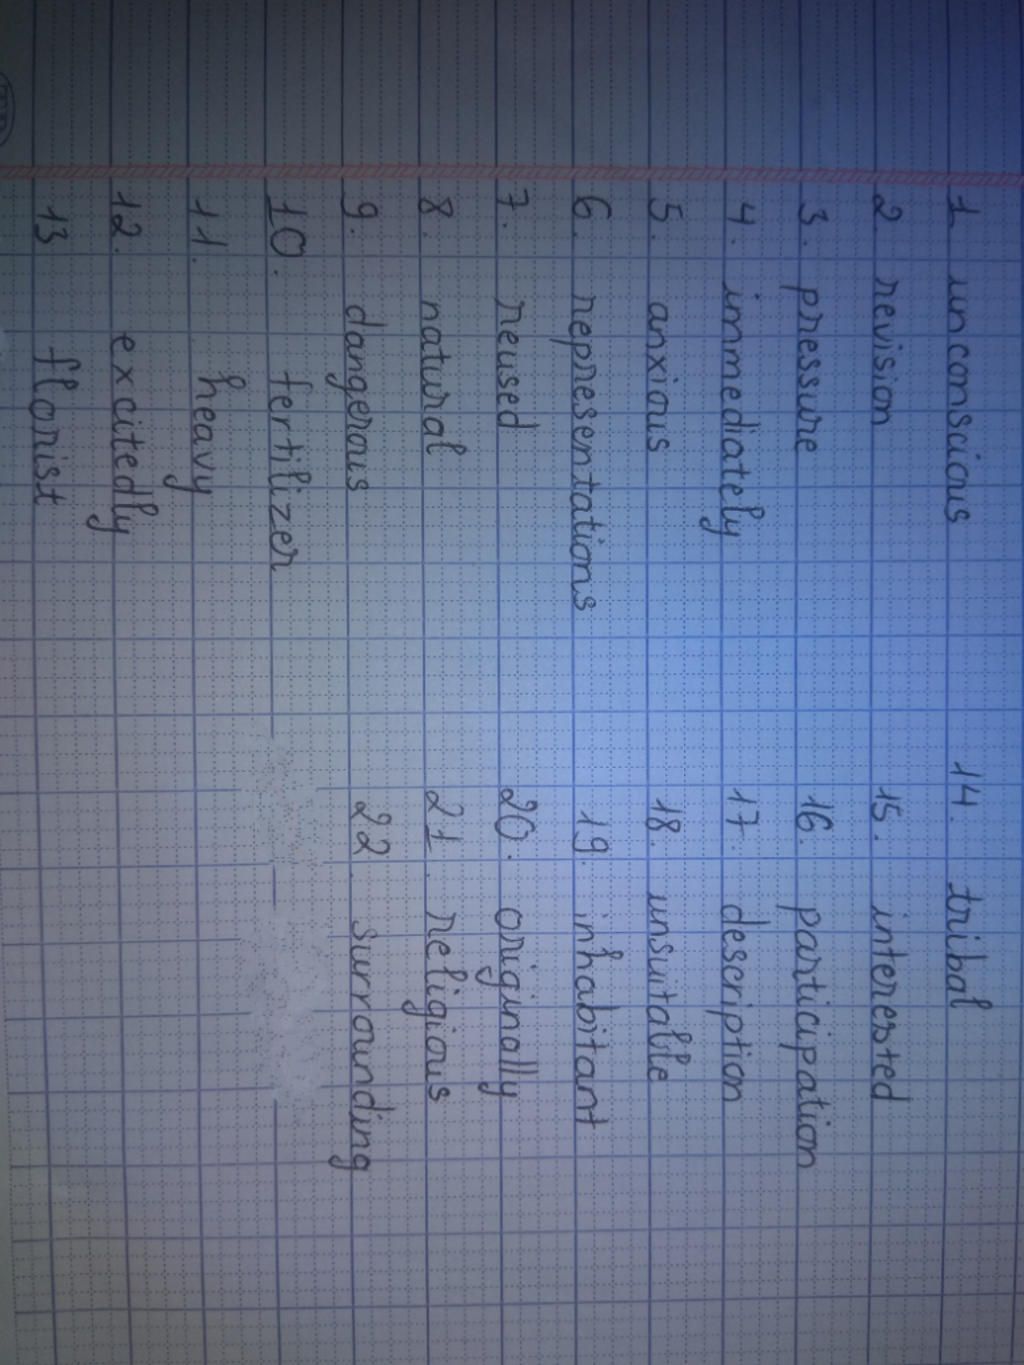 1 unconscious
2. revision
3. pressure
4. immediately
5. anxious
6. representations
7. reused
8. natural
9. dangerous
10. fertilizer
11. heavy
12. excitedly
13 florist
14. tribal
15. interested
16. participation
17. description
18. unsuitable
19. inhabitant
20. originally
21. religious
22. surrounding